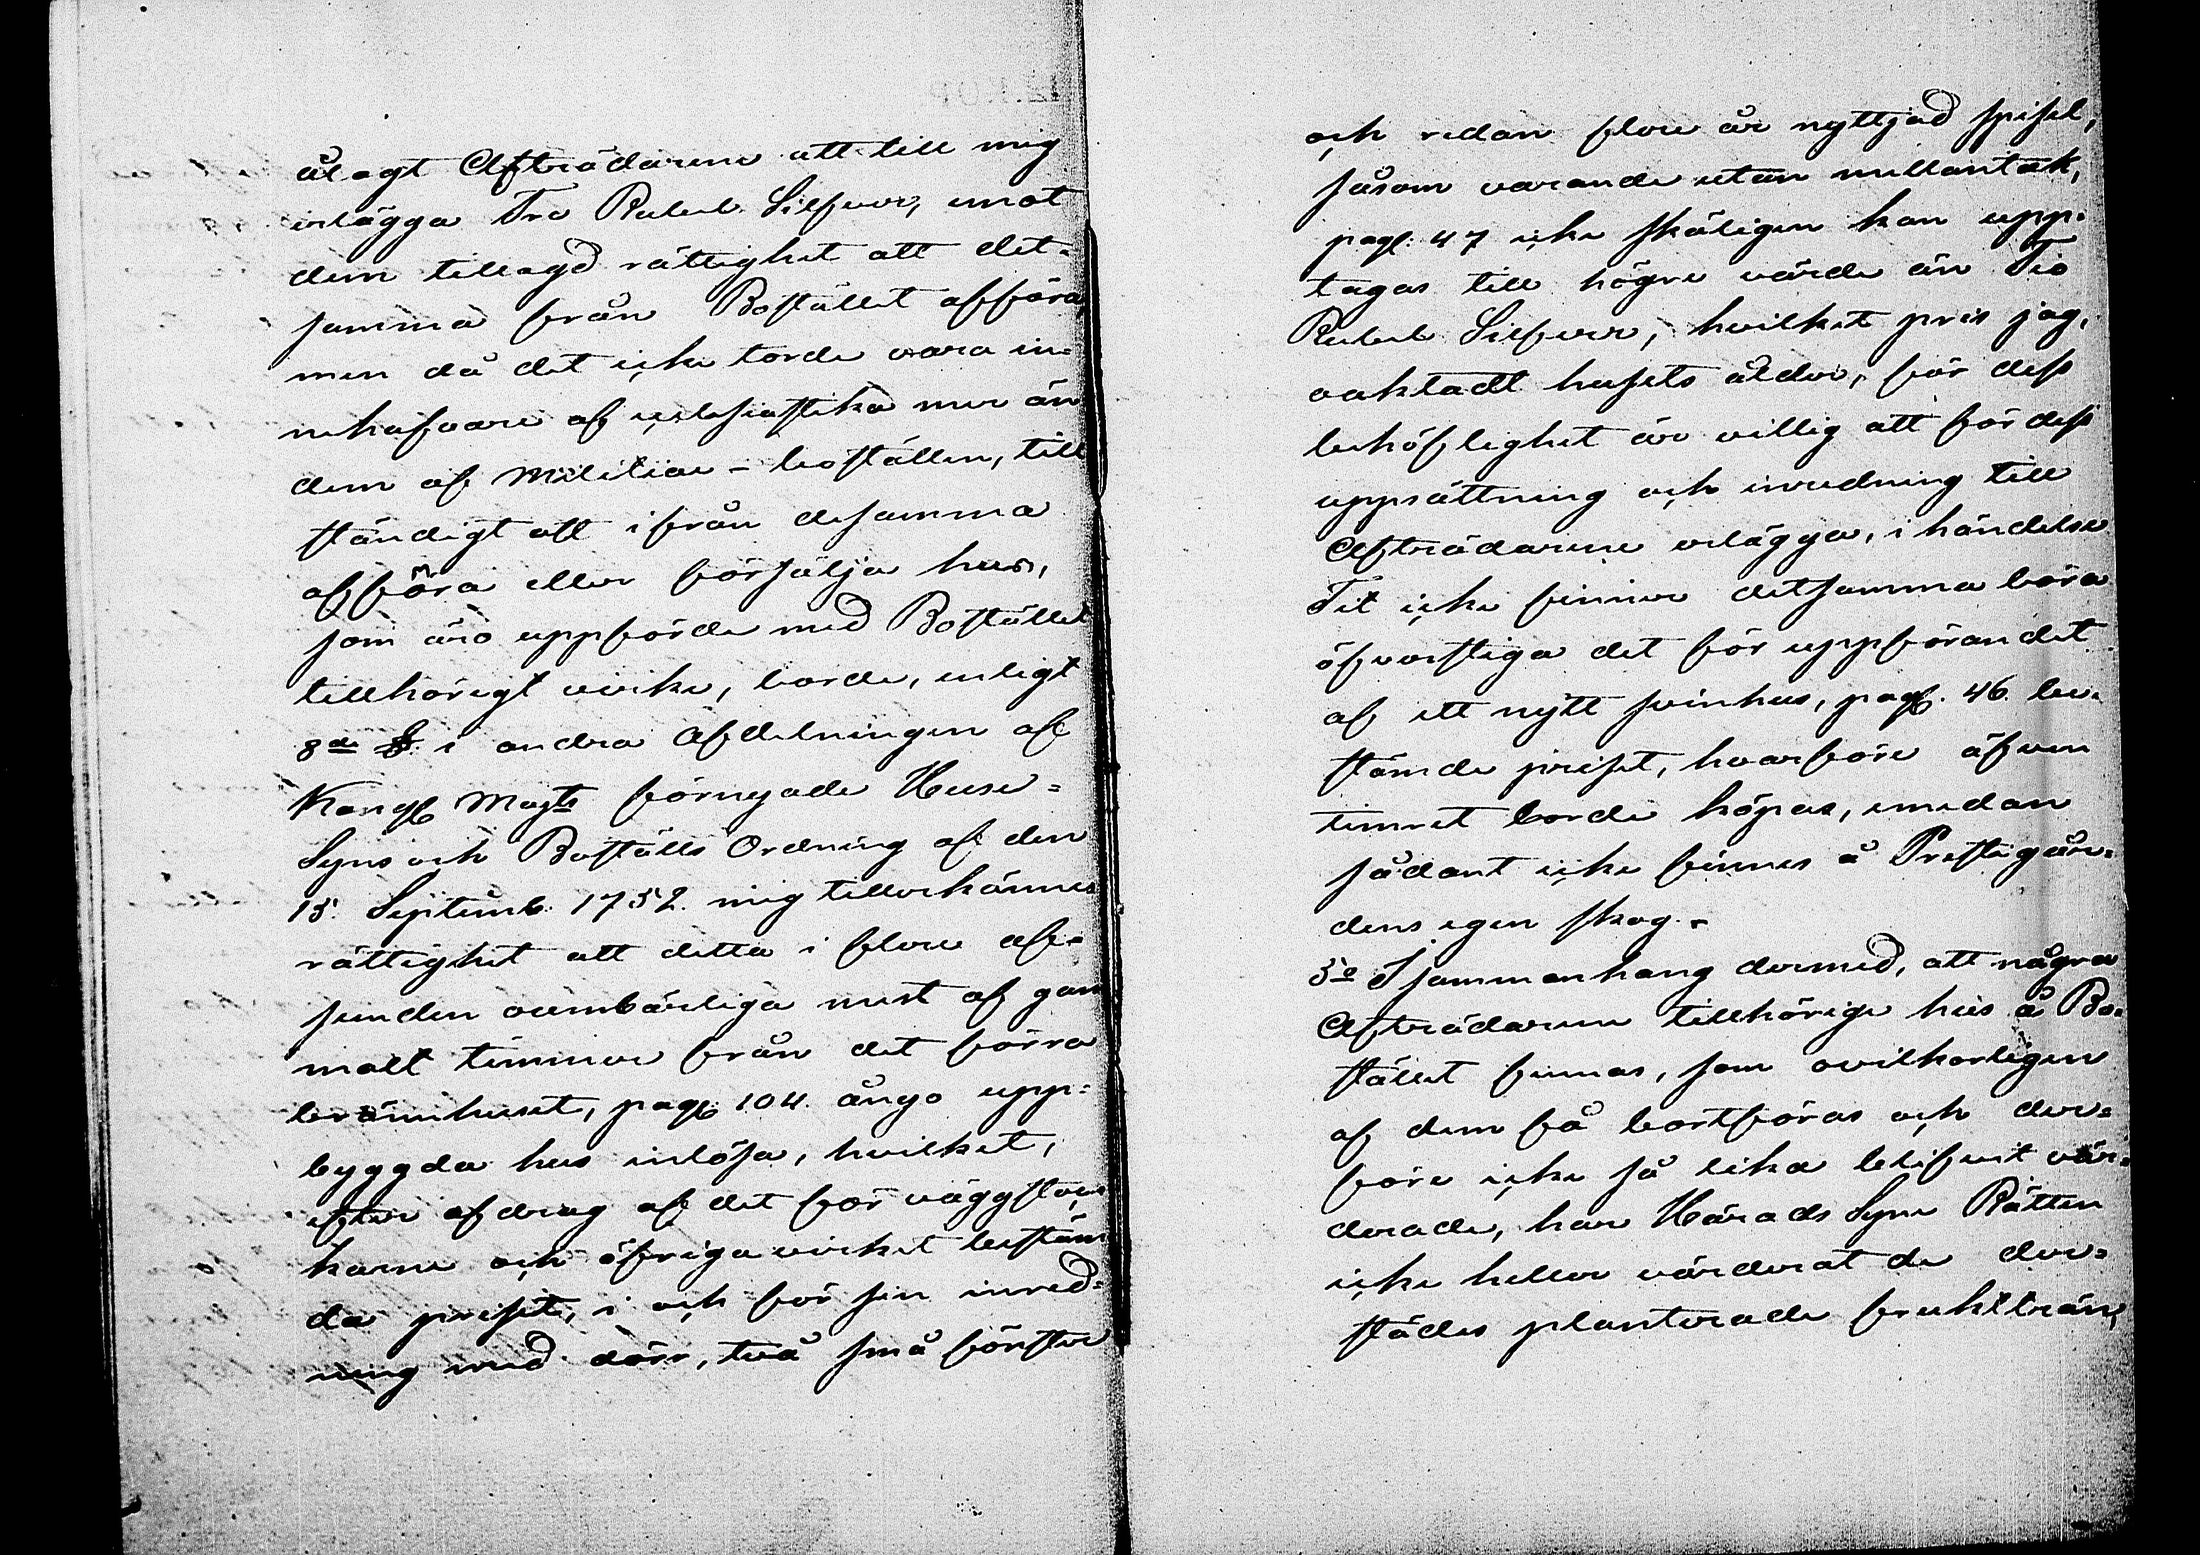 ålagt Afträdarene att till mig
erlägga Tre Rubel Silfver, emot
dem tillagd rättighet att det-
samma från Bostället afföra,
men då det icke torde vara in-
nehafvare af ecclesiastika mer än
dem af Militiae-boställen, till
ständigt att ifrån desamma
afföra eller försälja hus,
som äro uppförde med Bostället
tillhörigt virke, borde, enligt
8de §. i andra Afdelningen af
Kongl Majts förnyade Huse-
Syns och Boställs Ordning af den
15. Septemb. 1752. mig tillerkännes
rättighet att detta i flere af-
seenden oumbärliga mest af gam
malt timmer från det förra
brännhuset, pag. 104. ånyo upp-
byggda hus inlösa, hvilket,
efter afdrag af det för väggstoc
karne och öfriga virket bestäm
da priset, i och för sin inred-
ning med dörr, två små fönster
och redan flere år nyttjad spisel,
såsom varande utan mellantak,
pag. 47 icke skäligen kan upp-
tagas till högre värde än Tio
Rubel Silfver, hvilket pris jag,
oaktadt husets ålder, för dess
behöflighet är villig att för dess
uppsättning och inredning till
Afträdarene erlägga, i händelse
Tit icke finner detsamma böra
öfverstiga det för uppförandet
af ett nytt svinhus, pag. 46 be-
stämde priset, hvarföre äfven
timret borde köpas, emedan
sådant icke finnes å Prestegår-
dens egen skog.-
5o I sammanhang dermed, att några
Afträdarene tillhörige hus å Bo-
stället finnas, som ovilkorligen
af dem få bortföras och der-
före icke så lika blifvit vär-
derade, har Härads Syne Rätten
icke heller värderat de der-
städes planterade fruktträn,